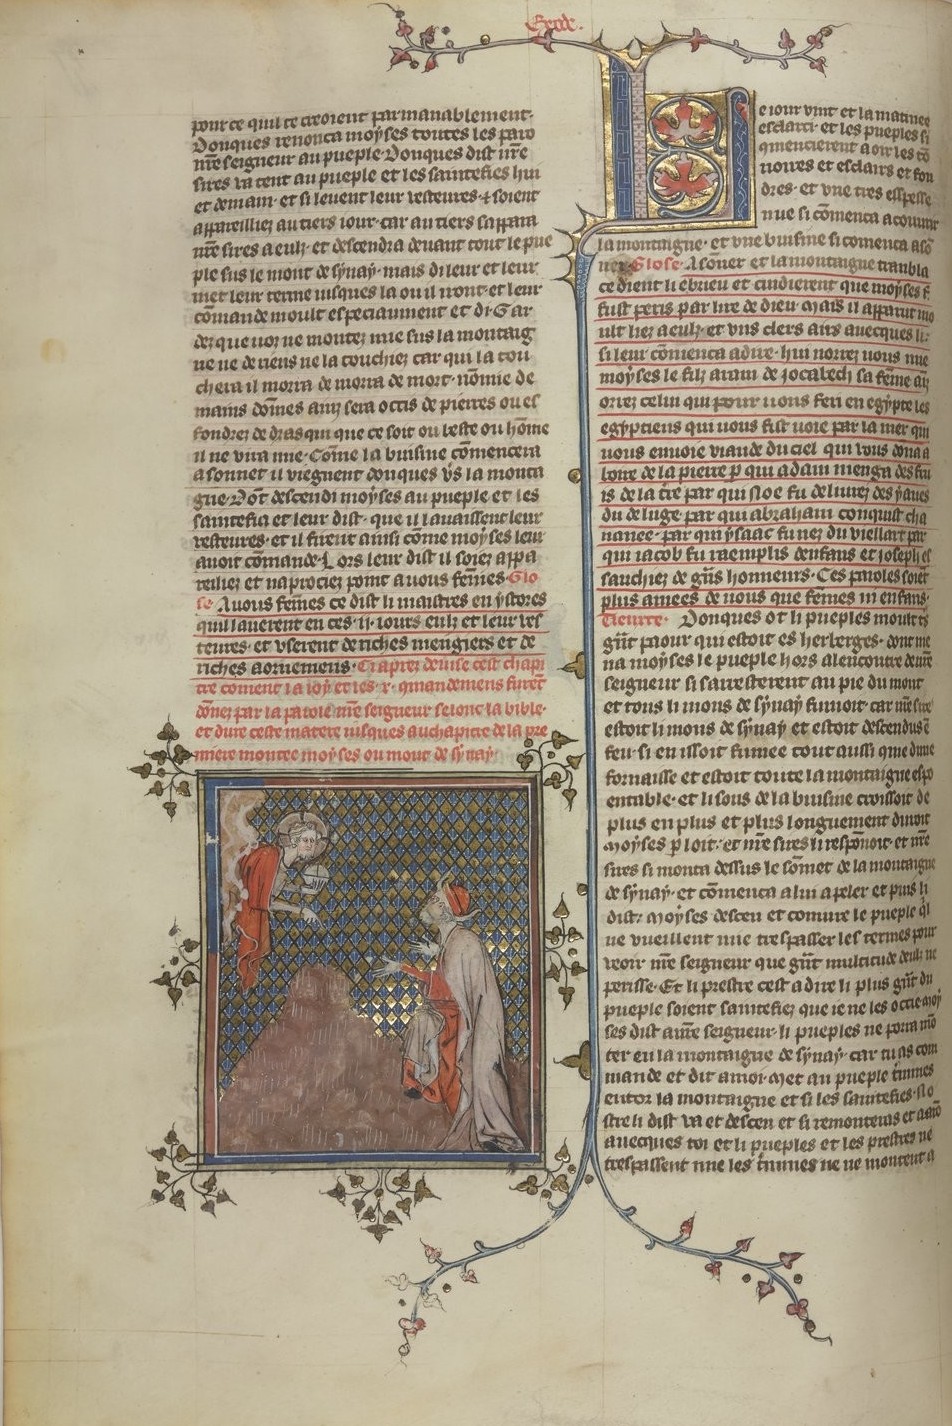 Exode.
pour ce quil te croient parmanablement.
Donques renonca moyses toutes les paro
nr̄e seigneur au pueple. Donques dist nr̄e
sires va tent au pueple et les saintefies hui
et demain. et si leuent leur vesteures. ⁊ soient
appareilliez au tiers iour. car au tiers sappara
nr̄e sires a eulz. et descendra deuant tout le pue
ple sus le mont de synay. mais di leur et leur
met leur terme iusques la ou il iront. et leur
cōmande moult especiaument et di. Gar
dez que uoz ne montez mie sus la montaig
ne ne de riens ne la touchiez car qui la tou
chera il morra de morra de mort. nōmie de
mains dōmes ainz sera occis de pierres ou es
fondrez de dras qui que ce soit ou beste ou hōme
il ne viura mie. Cōme la buisine cōmencera
a sonner il viegnent donques vs la monta
gne. Dōt descendi moyses au pueple et les
saintefia et leur dist. que il lauaissent leur
vesteures. et il furent ainsi cōme moyses leur
auoit cōmande. Lors leur dist il soiez appa
reilliez et naprociez point a uous femes. Glo
se. A uous femes ce dist li maistres en ystores
quil lauerent en ces .ii. iours eulz et leur ves
teures. et vserent de riches mengiers et de
riches aornemens. Ci apres deuise cest chapi
tre coment la loy et les .x. qmandemens furēt
dōnez par la parole nr̄e seigneur selonc la bible.
et dure ceste matere iusques au chapitre de la pre
miere montee moyses ou mont de synay.
Le iour vint et la matinee
esclarci. et les pueples si
qmencierent a oir les tō
noires et esclairs et fou
dres. et vne tres espesse
nue si cōmenca a couurir
la montaigne. et vne buisine si comenca a sō
ner. Glose. A sōner et la montaigne trambla
ce dient li ebrieu et cuidierent que moyses f
fust peris par lire de dieu. Mais il apparut mo
ult liez a eulz. et vns clers airs auecques li.
si leur cōmenca a dire. hui norrez uous mie
moyses le filz aram de jocabeth sa feme ain
orrez celui qui pour uous feri en egypte les
egyptiens qui uous fist uoie par la mer qui
uous enuoie viande du ciel qui vous dōna a
boire de la pierre p qui adam menga des fru
is de la tr̄e par qui Noe fu deliurez des yaues
du deluge. par qui abraham conquist cha
nanee. par qui ysaac fu nez du viellart par
qui iacob fu raemplis denfans et joseph es
sauciez de gr̄ns honneurs. Ces paroles soiēt
plus amees de uous que femes ni enfans.
Tieurte. Donques ot li pueples moult
gr̄nt paour qui estoit es herberges. dont me
na moyses le pueple hors a lencontre de nr̄e
seigneur si saresterent au pie du mont
et tous li mons de synay fumoit. car nr̄e sire
estoit li mons de synay et estoit descendus ē
feu. si en issoit fumee tout aussi que dune
fornaisse et estoit toute la montaigne espo
entable. et li sons de la buisine croissoit de
plus en plus et plus longuement duroit
Moyses ploit. et nr̄e sires li respōnoit. et nr̄e
sires si monta dessus le sōmet de la montaigne
de synay. et cōmenca a lui apeler et puis li
dist. Moyses descen et comure le pueple ql
ne vueillent mie trespasser les termes pour
veoir nr̄e seigneur que gr̄nt multitude deulz ne
perisse. Et li prestre cest a dire li plus gr̄nt du
pueple soient saintefiez que ie ne les occie. Moy
ses dist a nr̄e seigneur. li pueples ne porra mō
ter en la montaigne de synay. car tu as com
mande et dit a moi. Met au pueple t̄mnes
entor la montaigne et si les saintefies. No
stre li dist va et descen et si remonteras et aarō
auecques toi et li pueples et les prestres ne
trespassent mie les t̄mines ne ne montent a